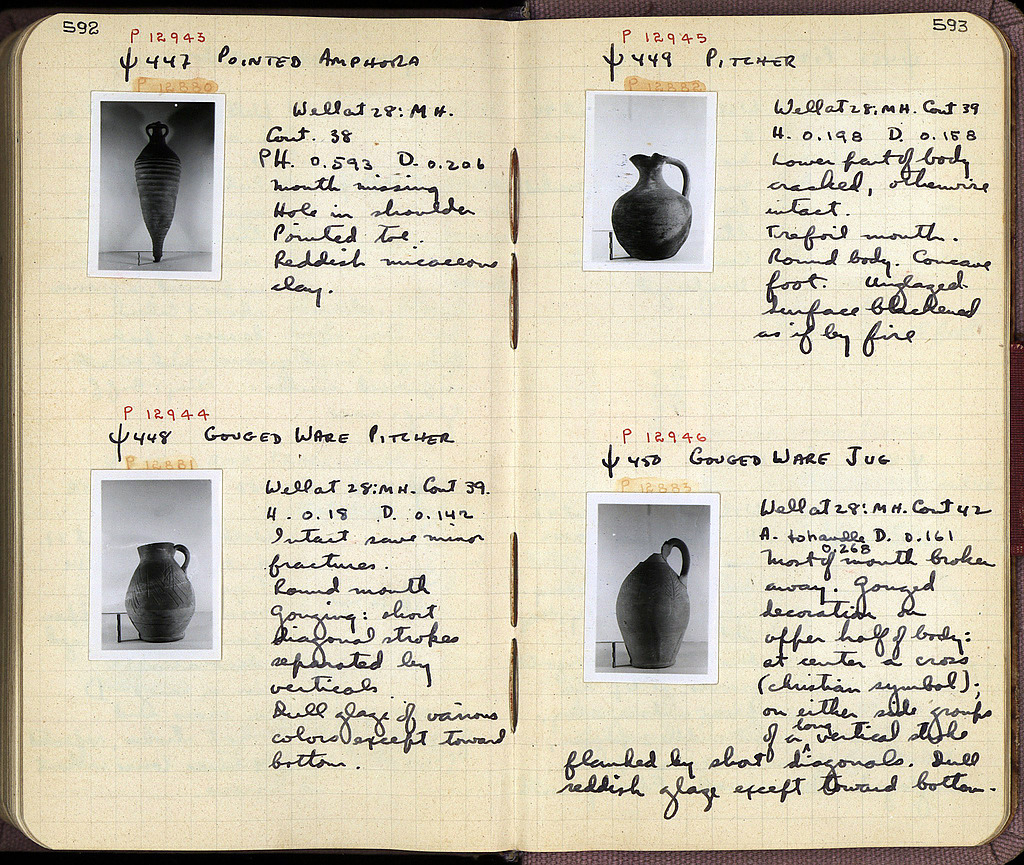 592
P 12943
ψ 447 POINTED AMPHORA
P 12880
Well at 28: MH.
Cont. 38
PH. 0.593 D. 0.206
Mouth missing
Hole in shoulder
Pointed toe.
Reddish micaceous
clay.
P 12944
ψ 448 GOUGED WARE PITCHER
P 12881
Well at 28: MH. Cont 39.
H. 0.18 D. 0.142
Intact save minor
fractures.
Round mouth
Gouging: short
diagonal strokes
separated by
verticals.
Dull glaze of various
colors except toward
bottom.
593
P 12945
ψ 449 PITCHER
P 12882
Well at 28: MH. Cont 39
H. 0.198 D. 0.158
Lower part of body
cracked, otherwise
intact.
Trefoil mouth.
Round body. Concave
foot. Unglazed.
Surface blackened
as if by fire
P 12946
ψ 450 GOUGED WARE JUG
P 12883
Well at 28: MH. Cont 42
H. to handle D. 0.161
0.268
Most of mouth broken
away. Gouged
decoration on
upper half of body:
at center a cross
(christian symbol);
on either side groups
of a long vertical stroke
flanked by short diagonals. Dull
reddish glaze except toward bottom.